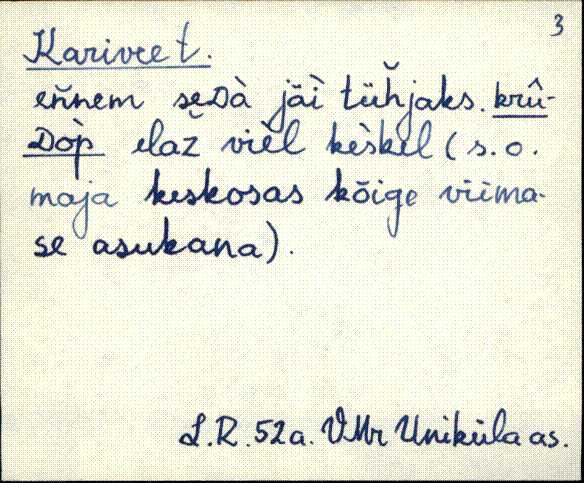 3
Karivee t.
eňnem seDà jäì tüȟjaks. krû-
Dòp elaž vièl kèskel (s. o.
maja keskosas kõige viima-
se asukana).
L.R. 52a. VMr Uniküla as.